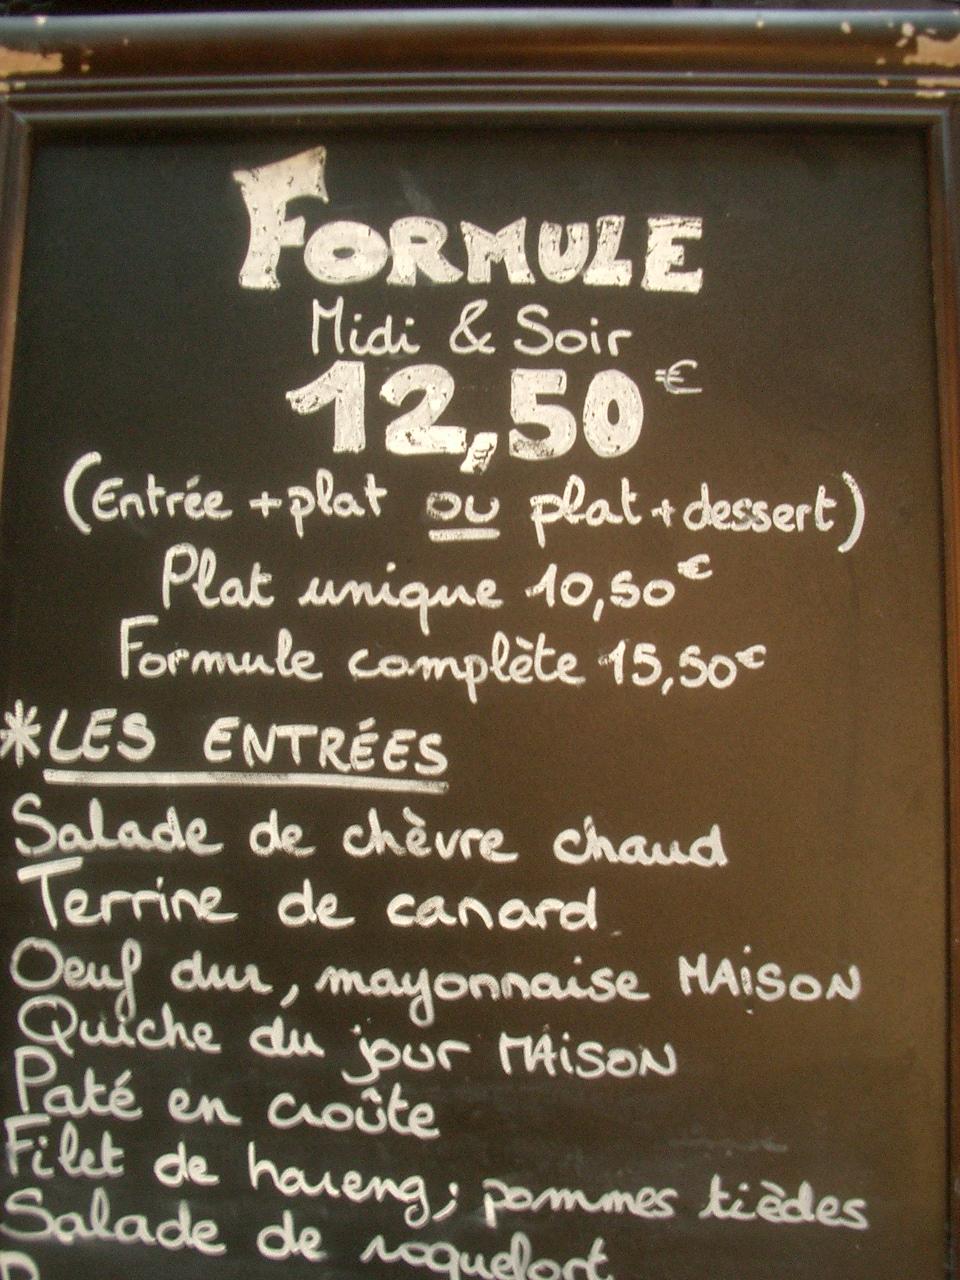 FORMULE
Midi & Soir
12,50€
(Entrée + plat ou plat + dessert)
Plat unique 10,50€
Formule complète 15,50€
*LES ENTRÉES
Salade de chèvre chaud
Terrine de canard
Oeuf dur, mayonnaise MAiSON
Quiche du jour MAiSON
Paté en croûte
Filet de hareng; pommes tièdes
Salade de roquefort